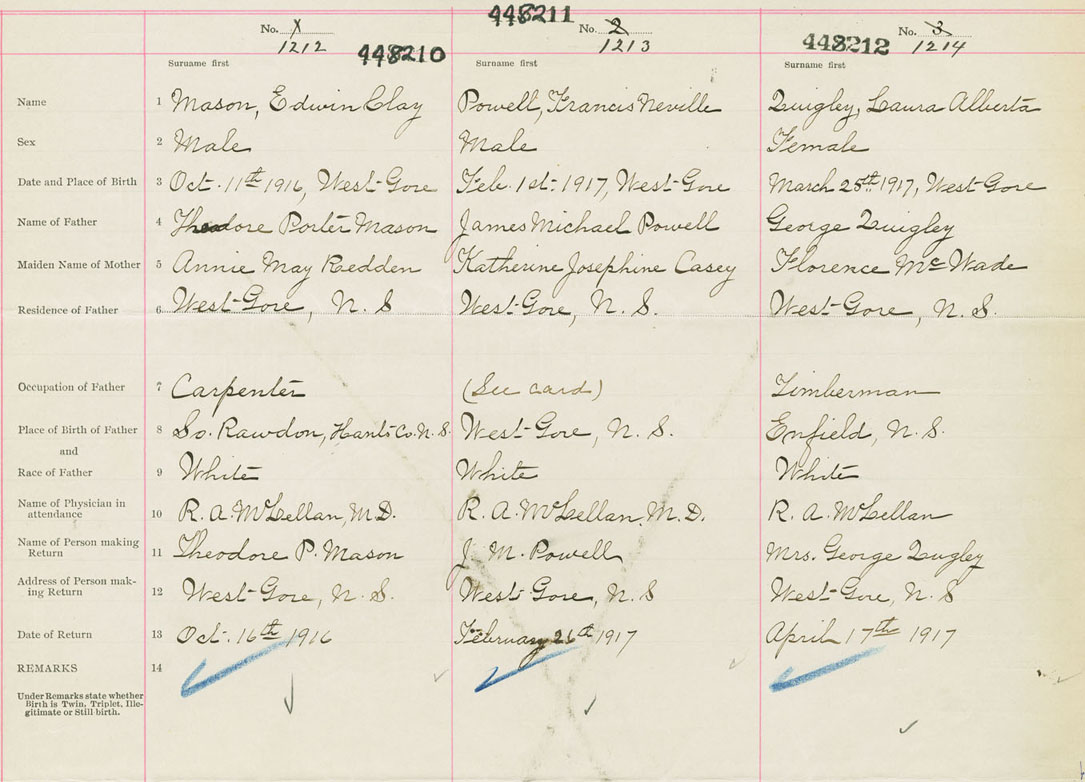 448211
No. 1 No. 2 No. 3
1212 448210 1213 448212 1214
Surname first Surname first Surname first
Name 1 Mason, Edwin Clay Powell, Francis Neville Quigley, Laura Alberta
Sex 2 Male Male Female
Date and Place of Birth 3 Oct. 11th 1916, West Gore Feb. 1st. 1917, West Gore March 25th 1917, West Gore
Name of Father 4 Theodore Porter Mason James Michael Powell George Quigley
Maiden Name of Mother 5 Annie May Redden Katherine Josephine Casey Florence McWade
Residence of Father 6 West Gore, N. S West Gore, N. S. West Gore, N. S.
Occupation of Father 7 Carpenter (See card) Timberman
Place of Birth of Father 8 So. Rawdon, Hants Co. N. S. West Gore, N. S. Enfield, N. S.
and
Race of Father 9 White White White
Name of Physician in
attendance 10 R. A. McLellan, M.D. R. A. McLellan, M.D. R. A. McLellan
Name of Person making
Return 11 Theodore P. Mason J. M. Powell Mrs. George Quigley
Address of Person mak-
ing Return 12 West Gore, N. S. West Gore, N. S West Gore, N. S
Date of Return 13 Oct. 16th 1916 February 26th 1917 April 17th 1917
REMARKS 14
Under Remarks state whether
Birth is Twin, Triplet, Ille-
gitimate or Still birth.